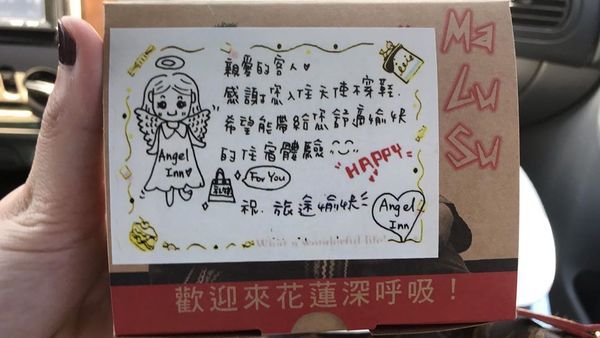 親愛的客人♥
感謝您入住天使不穿鞋.
希望能帶給您舒適愉快
的住宿體驗
HAPPY
For You
祝. 旅途愉快
Angel
Inn♥
Angel
Inn
Ma
Lu
Su
歡迎來花蓮深呼吸！